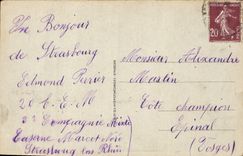 Un Bonjour
de Strasbourg
Edmond Perrin
20 C. E. M
2e Compagnie Mixte
Caserne Marcot Noir
Strasbourg bas Rhin
Monsieur Alexandre
Martin
Côte champion
Epinal
(Vosges)
20